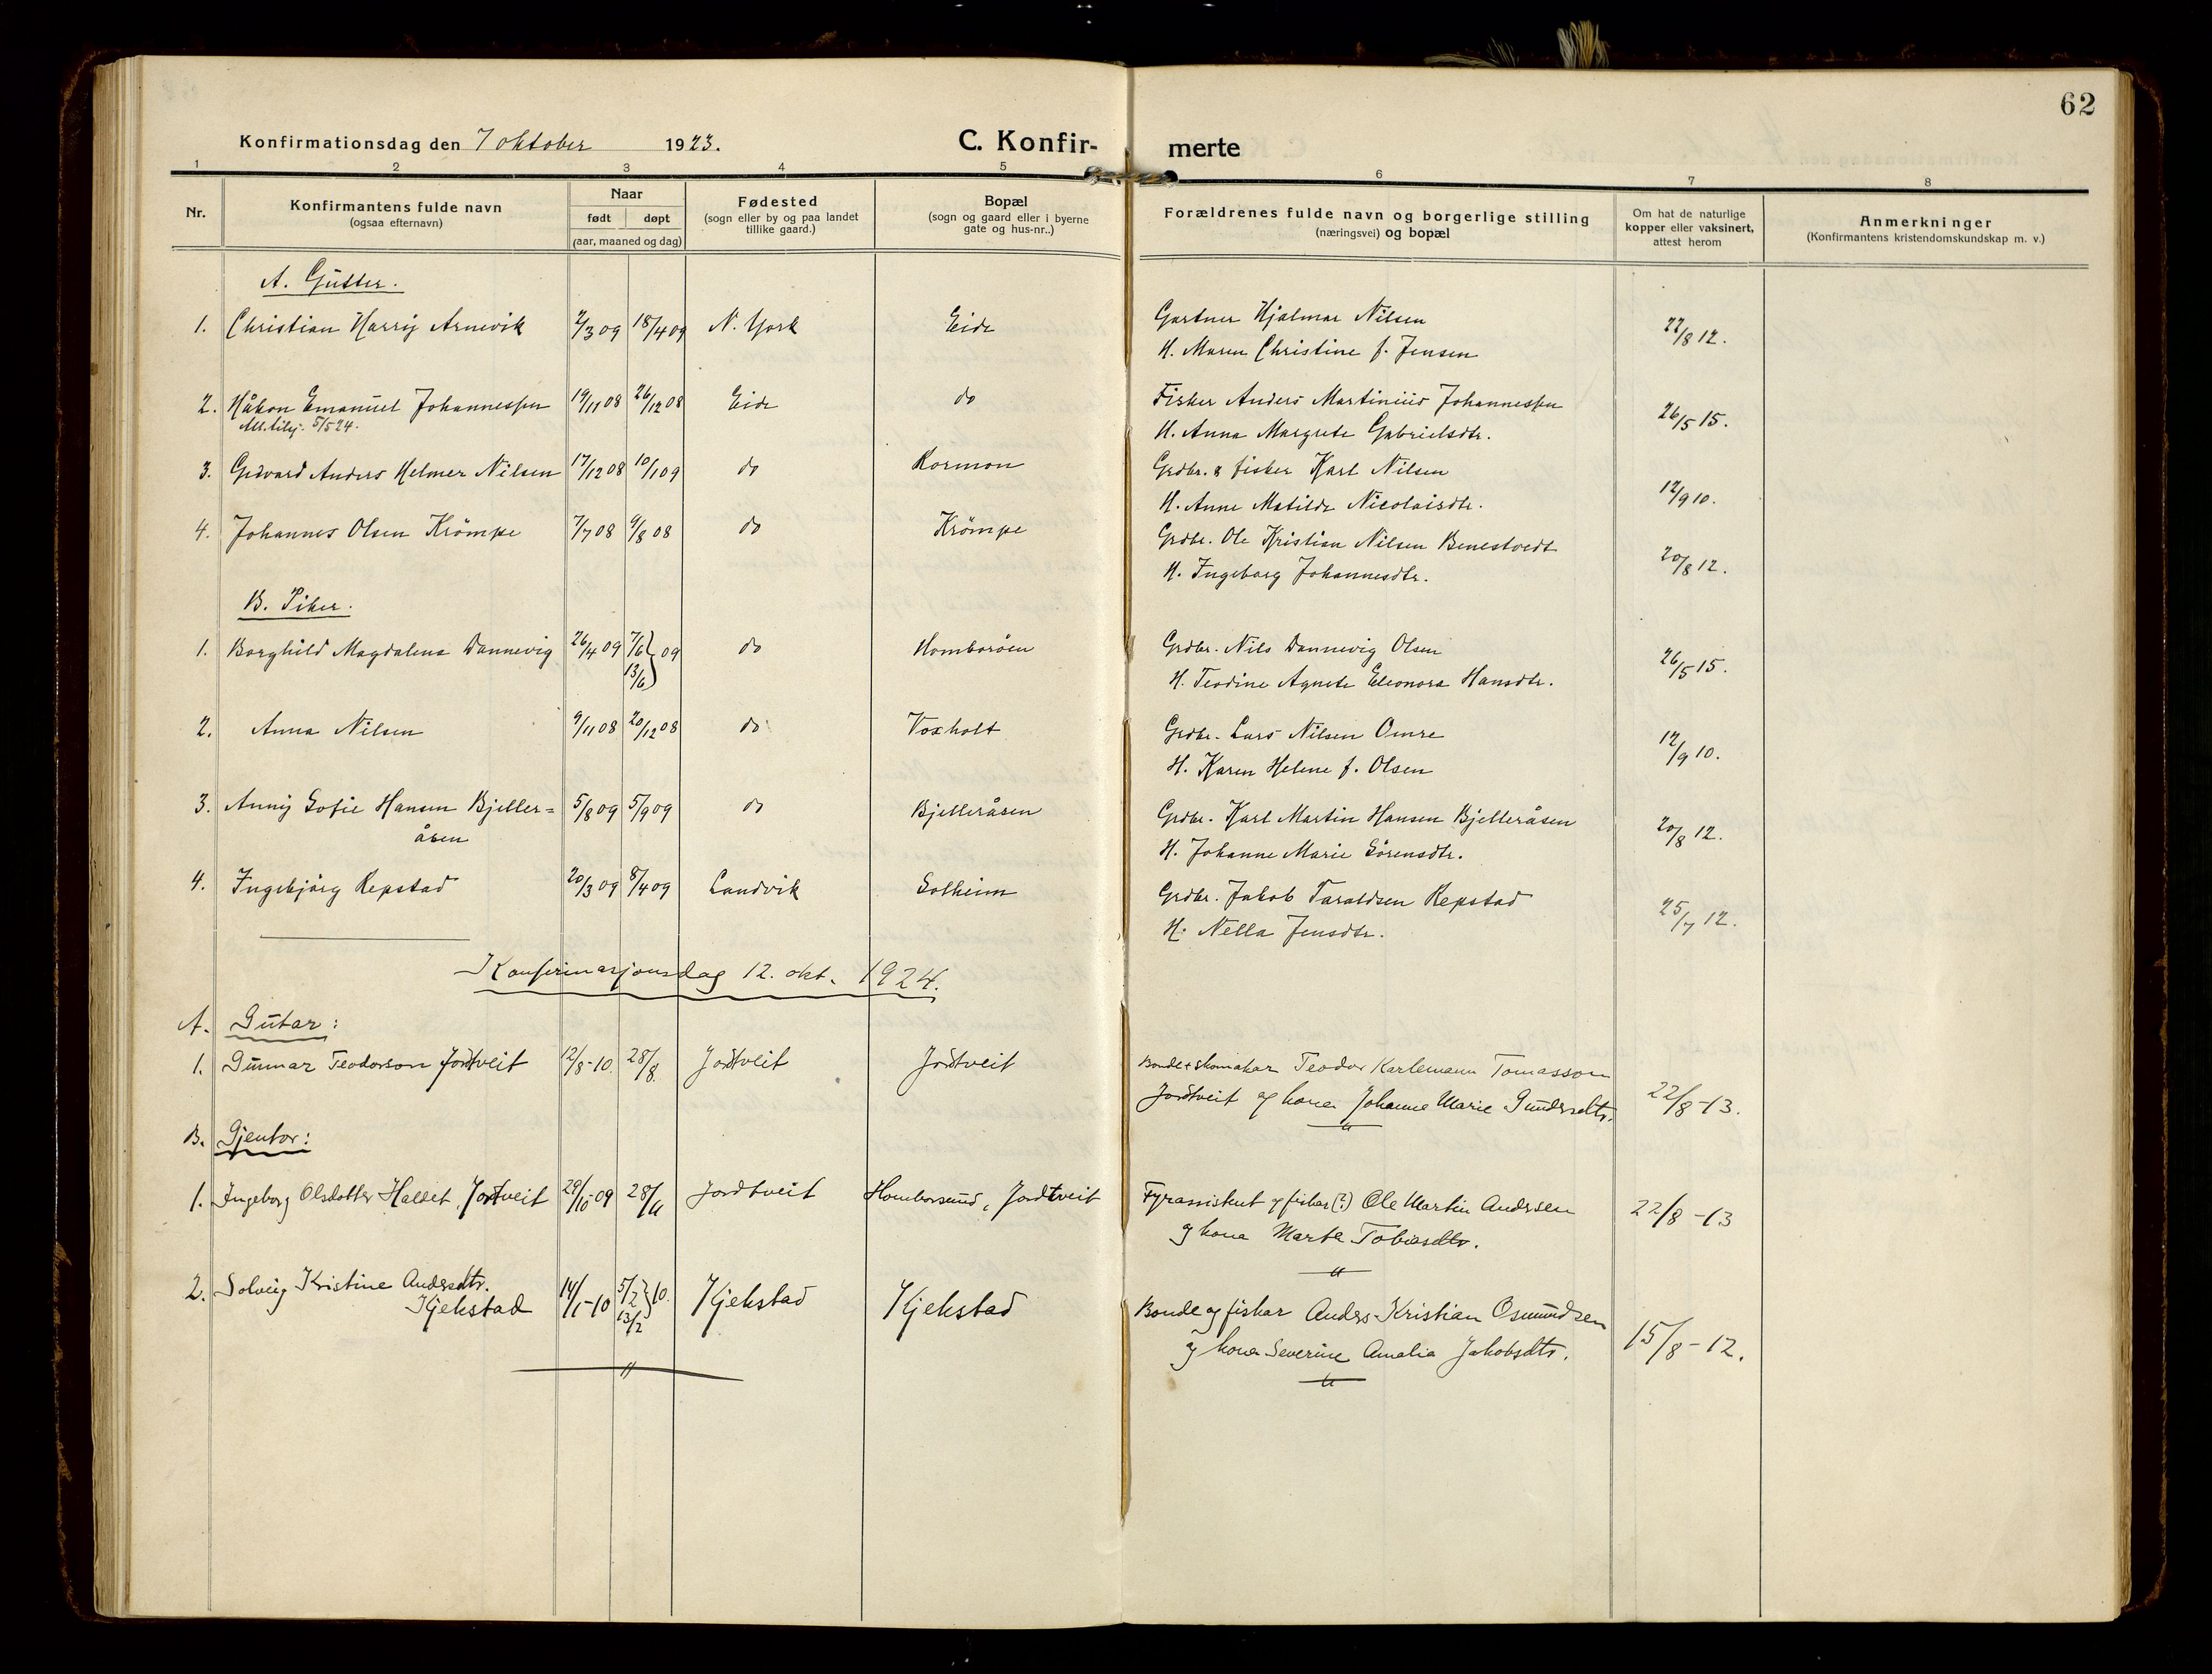 62
Konfirmationsdag den 7 oktober 1923. C. Konfir-merte
1 2 3 4 5 6 7 8
Nr. Konfirmantens fulde navn (ogsaa efternavn) Naar født døpt (aar, maaned og dag) Fødested (sogn eller by og paa landet tillike gaard.) Bopæl (sogn og gaard eller i byerne gate og hus-nr..) Forældrenes fulde navn og borgerlige stilling (næringsvei) og bopæl Om hat de naturlige kopper eller vaksinert, attest herom Anmerkninger (Konfirmantens kristendomskundskap m. v.)
A. Gutter.
1. Christian Harry Arnevik 2/3 09 18/4 09 N. York Eide Gartner Hjalmar Nilsen 22/8 12.
H. Maren Christine f. Jensen
2. Håkon Emanuel Johannessen 19/11 08 26/12 08 Eide do Fisker Anders Martinius Johannessen 26/5 15.
5/5 24. H. Anna Margrete Gabrielsdtr.
3. Gedvard Anders Helmer Nilsen 17/12 08 10/1 09 do Kormon Grdbr. & fisker Karl Nilsen 12/9 10.
H. Anne Matilde Nicolaisdtr.
4. Johannes Olsen Krömpe 7/7 08 9/8 08 do Krömpe Grdbr. Ole Kristian Nilsen Benestvedt 20/8 12.
H. Ingeborg Johannesdtr.
B. Piker.
1. Borghild Magdalene Dannevig 26/4 09 7/6 13/6 09 do Homboröen Grdbr. Nils Dannevig Olsen 26/5 15.
H. Teodine Agnete Eleonora Hansdtr.
2. Anna Nilsen 9/11 08 20/12 08 do Voxholt Grdbr. Lars Nilsen Omre 12/9 10.
H. Karen Helene f. Olsen
3. Anny Sofie Hansen Bjeller= 5/8 09 5/9 09 do Bjelleråsen Grdbr. Karl Martin Hansen Bjelleråsen 20/8 12.
åsen H. Johanne Marie Sörensdtr.
4. Ingebjörg Repstad 20/3 09 8/4 09 Landvik Solheim Grdbr. Jakob Taraldsen Repstad 25/7 12.
H. Nella Jensdtr.
Konfirmasjonsdag 12. okt. 1924.
A. Gutar:
1. Gunnar Teodorson Jortveit 12/8-10. 28/8. Jortveit Jortveit Bonde + skomakar Teodor Karlemann Tomasson 22/8-13.
Jortveit og kona Johanne Marie Gundersdtr.
B. Gjentor:
1. Ingeborg Olsdotter Hallet, Jortveit 29/10-09 28/11 Jordtveit Homborsund, Jordtveit Fyrassistent og fiskar (?) Ole Martin Andersen 22/8-13
og kona Marta Tobiasdtr.
2. Solveig Kristine Andersdtr. 14/1-10 5/2 13/2 10. Kjekstad Kjekstad Bonde og fiskar Anders Kristian Osmundsen 15/8-12.
Kjekstad og kona Severine Amalia Jakobsdtr.